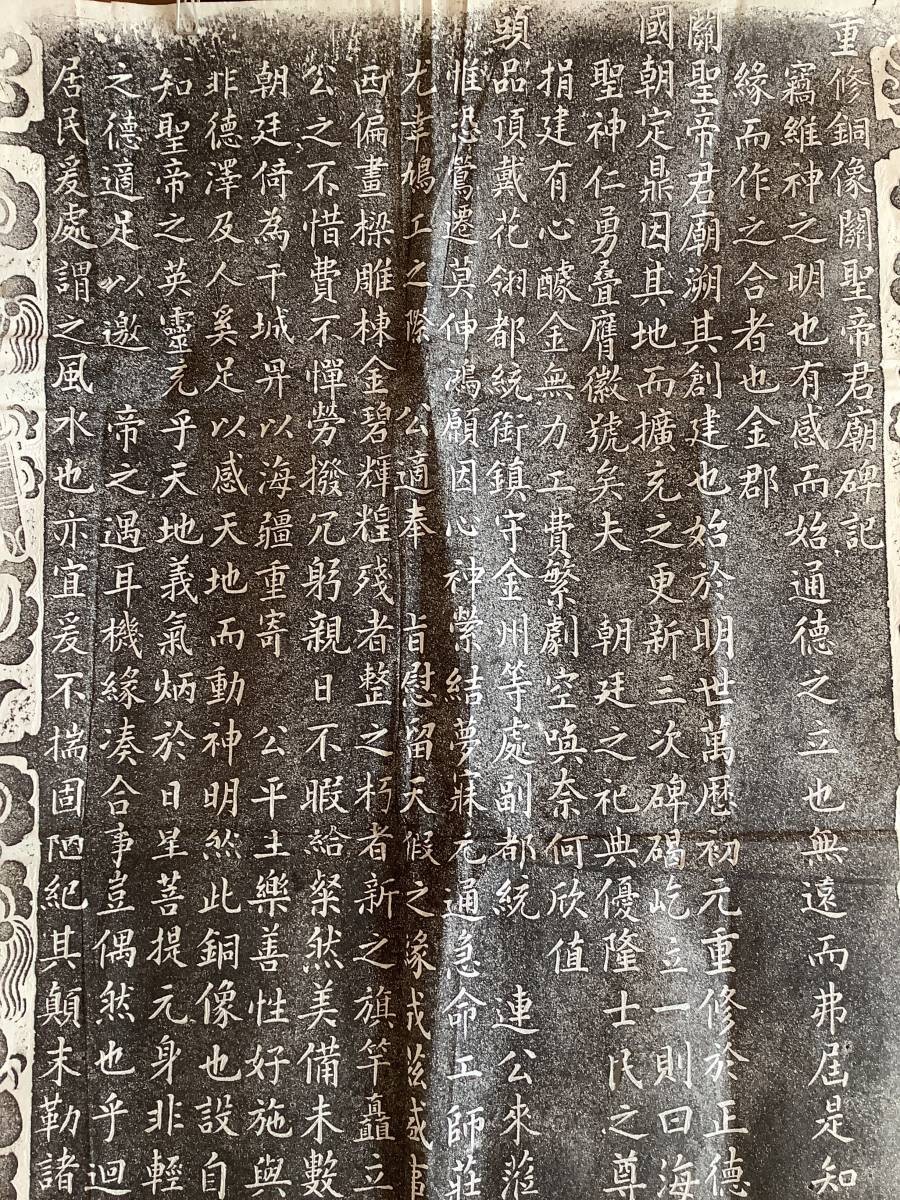 重修銅像關聖帝君廟碑記
竊維神之明也有感而始通德之立也無遠而弗屆是知
緣而作之合者也金郡
關聖帝君廟溯其創建也始於明世萬歷初元重修於正德
國朝定鼎因其地而擴充之更新三次碑碣屹立一則曰海
聖神仁勇疊膺徽號矣夫 朝廷之祀典優隆士民之尊
捐建有心醵金無力工費繁劇空喚奈何欣值
頭品頂戴花翎都統銜鎮守金州等處副都統 連公來蒞
惟恐鶯遷莫伸鴻願因心神縈結夢寐元通急命工師莊
尤幸鳩工之際 公適奉 旨慰留天假之緣成茲盛事
西偏畫樑雕棟金碧輝煌殘者整之朽者新之旗竿矗立
公之不惜費不憚勞撥冗躬親日不暇給粲然美備未數
朝廷倚為干城畀以海疆重寄 公平土樂善性好施與
非德澤及人奚足以感天地而動神明然此銅像也設自
知聖帝之英靈充乎天地義氣炳於日星菩提元身非輕
之德適足以邀 帝之遇耳機緣湊合事豈偶然也乎迴
居民爰處謂之風水也亦宜爰不揣固陋紀其顛末勒諸